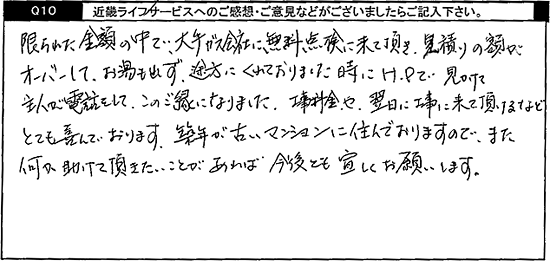 Q10 近畿ライフサービスへのご感想・ご意見などがございましたらご記入下さい。
限られた金額の中で、大手ガス会社に無料点検に来て頂き、見積りの額が
オーバーして、お湯も出ず、途方にくれておりました時にH.Pで見つけて
主人が電話をして、このご縁になりました。工事料金や、翌日に工事に来て頂けるなど
とても喜んでおります。築年が古いマンションに住んでおりますので、また
何か助けて頂きたいことがあれば今後とも宜しくお願いします。